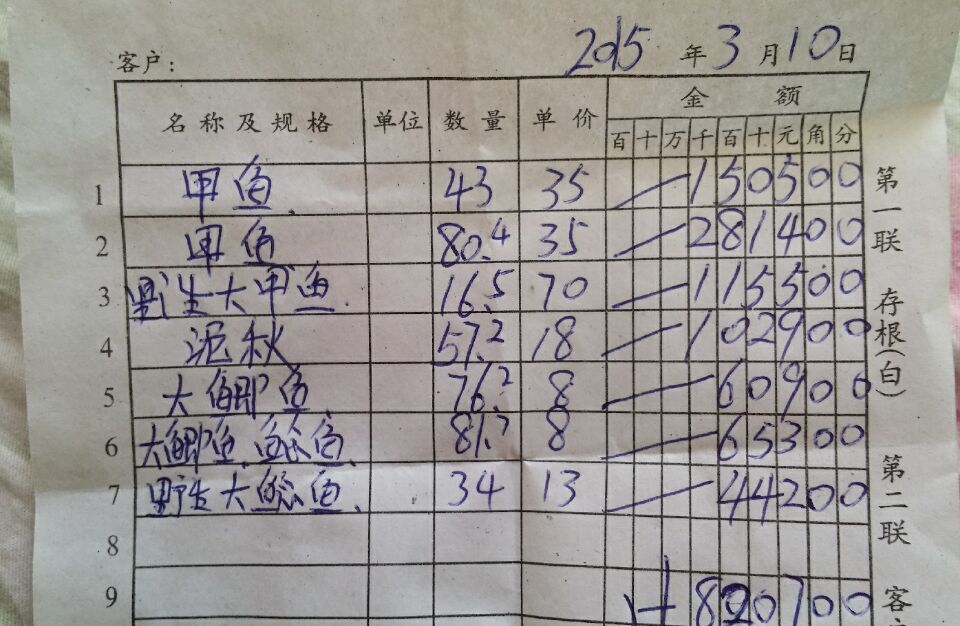 2015 年 3 月 10 日
客户：
名称及规格 单位 数量 单价 金额
百 十 万 千 百 十 元 角 分
1 甲鱼. 43 35 150500
2 甲鱼 80.4 35 281400
3 野生大甲鱼. 16.5 70 115500
4 泥秋 57.2 18 102900
5 大鲫鱼. 76.2 8 60900
6 大鲫鱼. 鲶鱼. 81.7 8 65300
7 野生大鲶鱼. 34 13 44200
8
9 820700
第一联 存根(白) 第二联 客